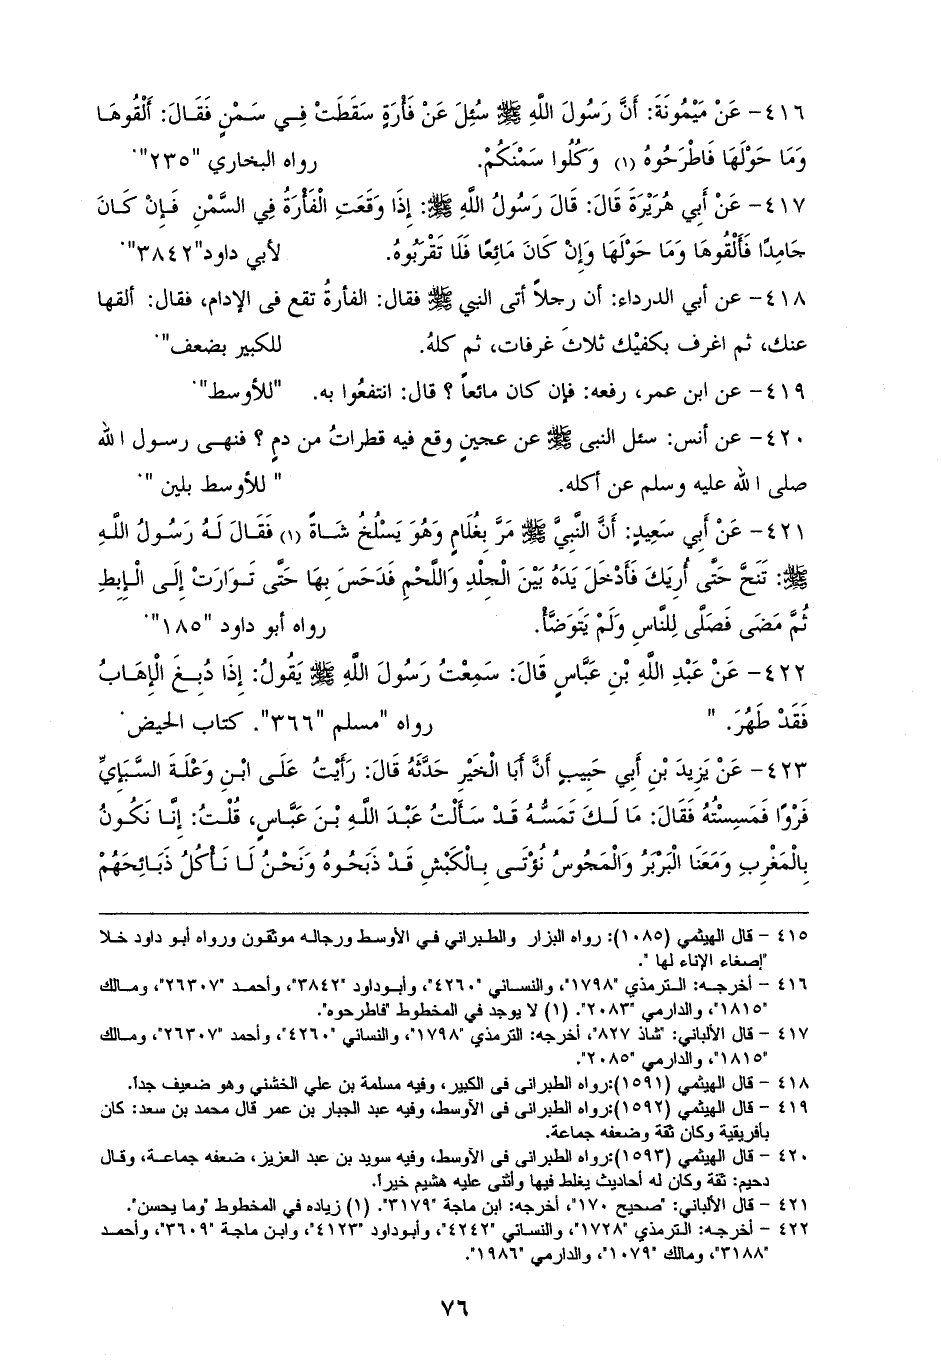 ٤١٦- عَنْ مَيْمُونَةَ: أَنَّ رَسُولَ اللَّهِ ﷺ سُئِلَ عَنْ فَأْرَةٍ سَقَطَتْ فِي سَمْنٍ فَقَالَ: أَلْقُوهَا
وَمَا حَوْلَهَا فَاطْرَحُوهُ (١) وَكُلُوا سَمْنَكُمْ. رواه البخاري "٢٣٥".
٤١٧- عَنْ أَبِي هُرَيْرَةَ قَالَ: قَالَ رَسُولُ اللَّهِ ﷺ: إِذَا وَقَعَتِ الْفَأْرَةُ فِي السَّمْنِ فَإِنْ كَانَ
جَامِدًا فَأَلْقُوهَا وَمَا حَوْلَهَا وَإِنْ كَانَ مَائِعًا فَلَا تَقْرَبُوهُ. لأبي داود"٣٨٤٢".
٤١٨- عن أبي الدرداء: أن رجلاً أتى النبي ﷺ فقال: الفأرةُ تقع فى الإدام، فقال: ألقها
عنك، ثم اغرف بكفيْك ثلاثَ غرفات، ثم كلهُ. للكبير بضعف".
٤١٩- عن ابن عمر، رفعه: فإن كان مائعاً ؟ قال: انتفعُوا به. "للأوسط".
٤٢٠- عن أنس: سئل النبى ﷺ عن عجينٍ وقع فيه قطراتُ من دمٍ ؟ فنهى رسول الله
صلى الله عليه وسلم عن أكله. " للأوسط بلين ".
٤٢١- عَنْ أَبِي سَعِيدٍ: أَنَّ النَّبِيَّ ﷺ مَرَّ بِغُلَامٍ وَهُوَ يَسْلُخُ شَاةً (١) فَقَالَ لَهُ رَسُولُ اللَّهِ
ﷺ: تَنَحَّ حَتَّى أُرِيَكَ فَأَدْخَلَ يَدَهُ بَيْنَ الْجِلْدِ وَاللَّحْمِ فَدَحَسَ بِهَا حَتَّى تَوَارَتْ إِلَى الْإِبِطِ
ثُمَّ مَضَى فَصَلَّى لِلنَّاسِ وَلَمْ يَتَوَضَّأْ. رواه أبو داود "١٨٥".
٤٢٢- عَنْ عَبْدِ اللَّهِ بْنِ عَبَّاسٍ قَالَ: سَمِعْتُ رَسُولَ اللَّهِ ﷺ يَقُولُ: إِذَا دُبِغَ الْإِهَابُ
فَقَدْ طَهُرَ. " رواه "مسلم "٣٦٦". كتاب الحيض.
٤٢٣- عَنْ يَزِيدَ بْنِ أَبِي حَبِيبٍ أَنَّ أَبَا الْخَيْرِ حَدَّثَهُ قَالَ: رَأَيْتُ عَلَى ابْنِ وَعْلَةَ السَّبَإِيِّ
فَرْوًا فَمَسِسْتُهُ فَقَالَ: مَا لَكَ تَمَسُّهُ قَدْ سَأَلْتُ عَبْدَ اللَّهِ بْنَ عَبَّاسٍ، قُلْتُ: إِنَّا نَكُونُ
بِالْمَغْرِبِ وَمَعَنَا الْبَرْبَرُ وَالْمَجُوسُ نُؤْتَى بِالْكَبْشِ قَدْ ذَبَحُوهُ وَنَحْنُ لَا نَأْكُلُ ذَبَائِحَهُمْ
٤١٥ - قال الهيثمي (١٠٨٥): رواه البزار والطبراني في الأوسط ورجاله موثقون ورواه أبو داود خلا
"إصغاء الإناء لها ".
٤١٦ - أخرجه: الترمذي "١٧٩٨"، والنسائي "٤٢٦٠"، وأبوداود "٣٨٤٢"، وأحمد "٢٦٣٠٧"، ومالك
"١٨١٥"، والدارمي "٢٠٨٣". (١) لا يوجد في المخطوط "فاطرحوه".
٤١٧ - قال الألباني: "شاذ ٨٢٧"، أخرجه: الترمذي "١٧٩٨"، والنسائي "٤٢٦٠"، وأحمد "٢٦٣٠٧"، ومالك
"١٨١٥"، والدارمي "٢٠٨٥".
٤١٨ - قال الهيثمي (١٥٩١):رواه الطبرانى فى الكبير، وفيه مسلمة بن علي الخشني وهو ضعيف جداً.
٤١٩ - قال الهيثمي (١٥٩٢):رواه الطبرانى فى الأوسط، وفيه عبد الجبار بن عمر قال محمد بن سعد: كان
بأفريقية وكان ثقة وضعفه جماعة.
٤٢٠ - قال الهيثمي (١٥٩٣):رواه الطبرانى فى الأوسط، وفيه سويد بن عبد العزيز، ضعفه جماعة، وقال
دحيم: ثقة وكان له أحاديث يغلط فيها وأثنى عليه هشيم خيراً.
٤٢١ - قال الألباني: "صحيح ١٧٠"، أخرجه: ابن ماجة "٣١٧٩". (١) زياده في المخطوط "وما يحسن".
٤٢٢ - أخرجه: الترمذي "١٧٢٨"، والنسائي "٤٢٤٢"، وأبوداود "٤١٢٣"، وابن ماجة "٣٦٠٩"، وأحمد
"٣١٨٨"، ومالك "١٠٧٩"، والدارمي "١٩٨٦".
٧٦